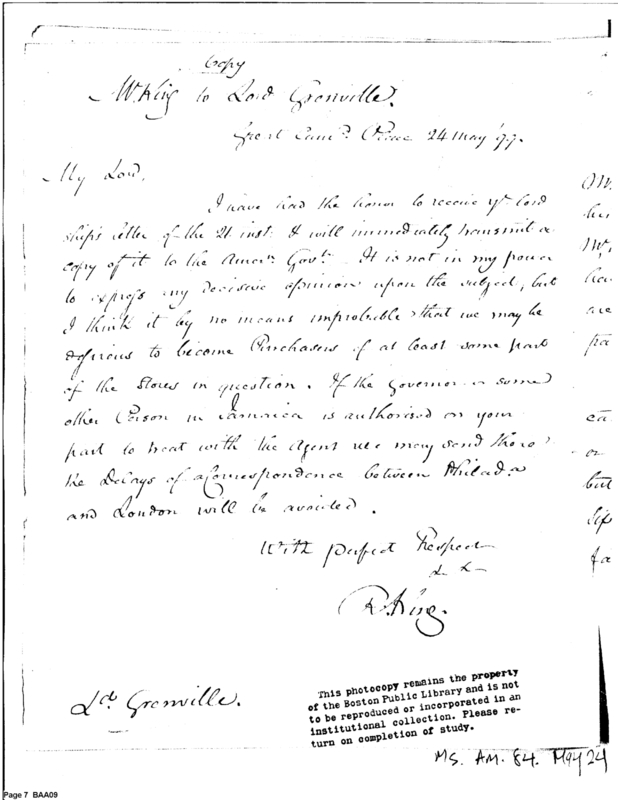 Copy
Mr. King to Lord Grenville.
Great Cumd. Place 24 May 99.
My Lord,
I have had the honor to receive yr lord
ship's letter of the 21 inst. I will immediately transmit a
copy of it to the Amern. Govt. It is not in my power
to express any decisive opinion upon the subject, but
I think it by no means improbable that we may be
desirous to become Purchasers of at least some part
of the Stores in question. If the Governor or some
other Person in Jamaica is authorised on your
part to treat with the Agent we may send there
the Delays of a Correspondence between Philada
and London will be avoided.
With perfect Respect
R. King.
Ld. Grenville.
This photocopy remains the property
of the Boston Public Library and is not
to be reproduced or incorporated in an
institutional collection. Please re-
turn on completion of study.
MS. AM. 84. May 24
Page 7 BAA09